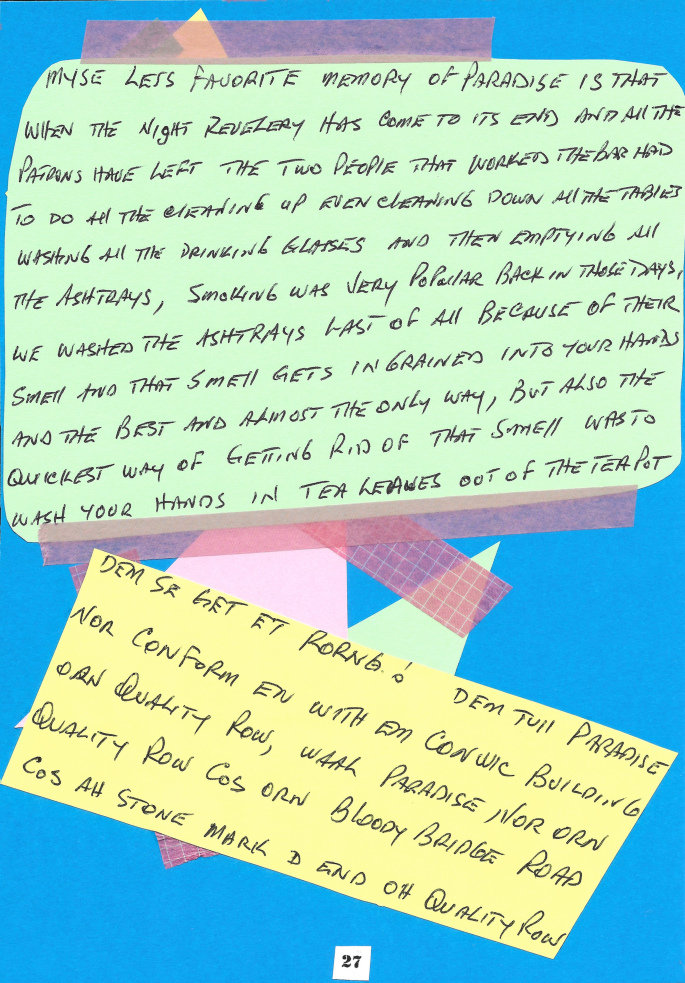 MYSE LESS FAVORITE MEMORY OF PARADISE IS THAT
WHEN THE NIgHT REVELERY HAS COME TO ITS END AND All THE
PATRONS HAVE LEFT THE TWO PEOPLE THAT WORKED THE BAR HAD
TO DO All THE CLEANING UP EVEN CLEANING DOWN All THE TABLES
WASHING All THE DRINKING GLASSES AND THEN EMPTYING All
THE ASHTRAYS, SMOKING WAS VERY POPULAR BACK IN THOSE DAYS,
WE WASHED THE ASHTRAYS LAST OF All BECAUSE OF THEIR
SMEll AND THAT SMEll GETS INGRAINED INTO YOUR HANDS
AND THE BEST AND ALMOST THE ONLY WAY, BUT ALSO THE
QUICKEST WAY OF GETTING RID OF THAT SMEll WAS TO
WASH YOUR HANDS IN TEA LEAWES OUT OF THE TEA POT
DEM SE GET ET RORNG.! DEM TUll PARADISE
NOR CONFORM EN WITH EM CONWIC BUILDING
ORN QUALITY ROW, WAAL PARADISE NOR ORN
QUALITY ROW COS ORN BLOODY BRIDGE ROAD
COS AH STONE MARK D END OH QUALITY ROW
27